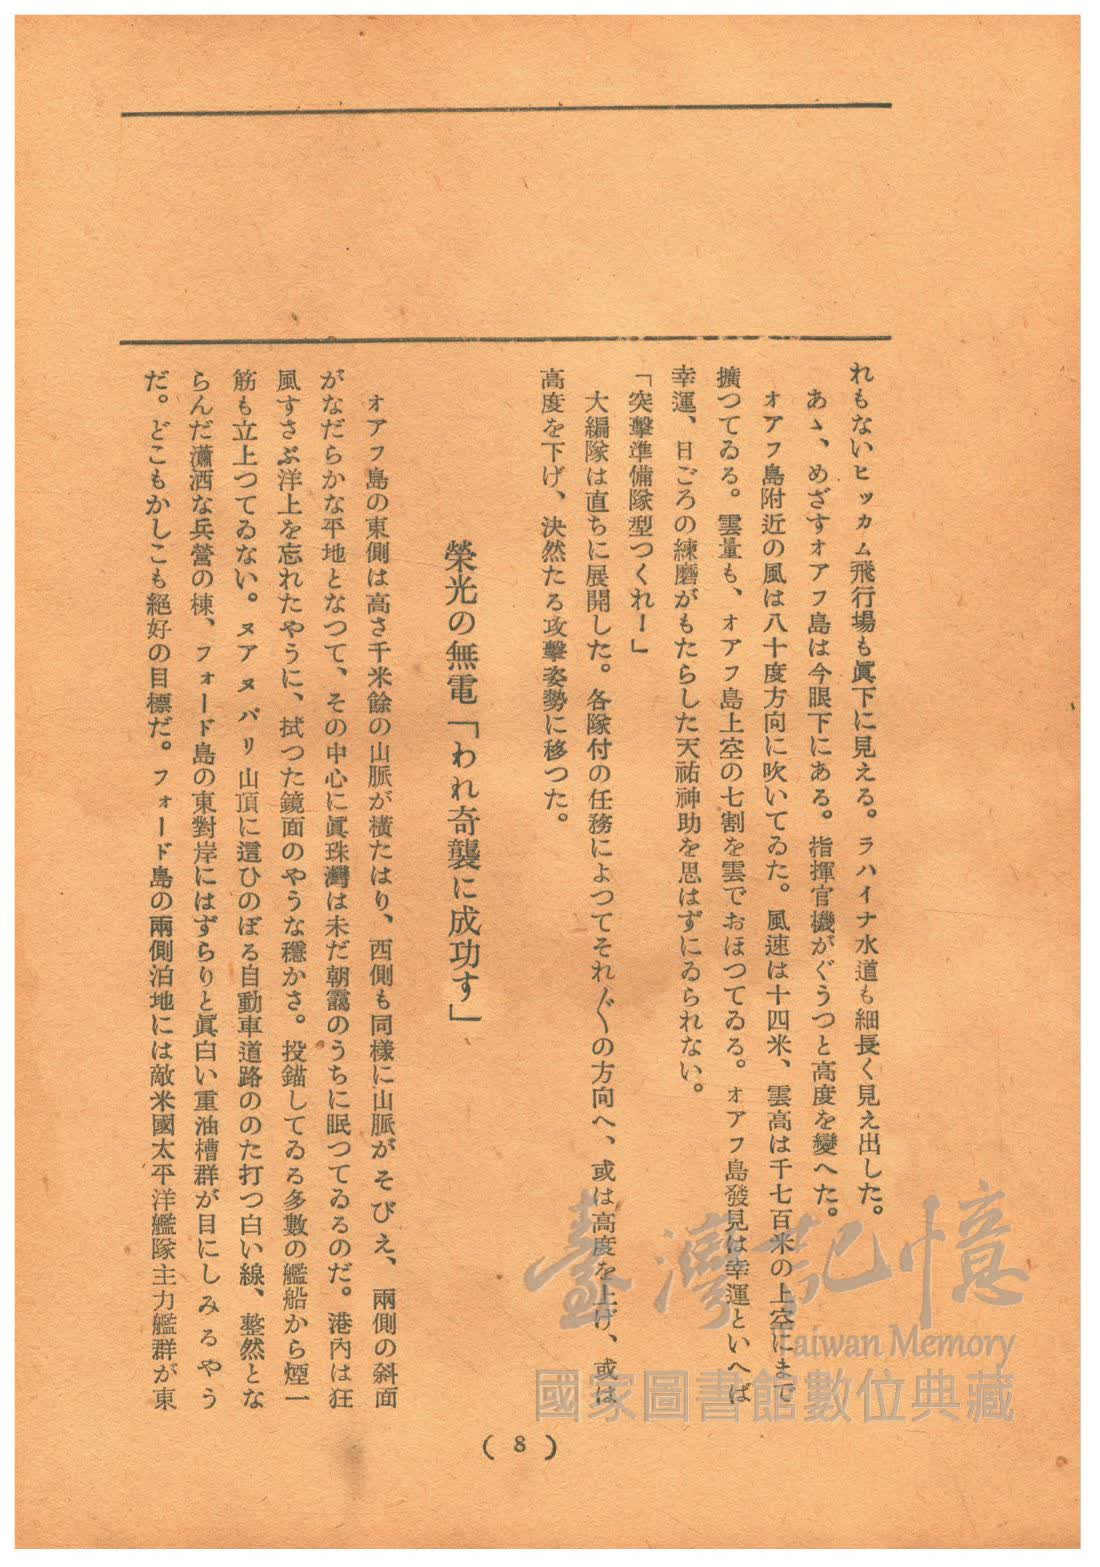 れもないヒッカム飛行場も眞下に見える。ラハイナ水道も細長く見え出した。
あゝ、めざすオアフ島は今眼下にある。指揮官機がぐうつと高度を變へた。
オアフ島附近の風は八十度方向に吹いてゐた。風速は十四米、雲高は千七百米の上空にまで
擴つてゐる。雲量も、オアフ島上空の七割を雲でおほつてゐる。オアフ島發見は幸運といへば
幸運、日ごろの練磨がもたらした天祐神助を思はずにゐられない。
「突擊準備隊型つくれー」
大編隊は直ちに展開した。各隊付の任務によつてそれ〴〵の方向へ、或は高度を上げ、或は
高度を下げ、決然たる攻擊姿勢に移つた。
榮光の無電「われ奇襲に成功す」
オアフ島の東側は高さ千米餘の山脈が橫たはり、西側も同樣に山脈がそびえ、兩側の斜面
がなだらかな平地となつて、その中心に眞珠灣は未だ朝靄のうちに眠つてゐるのだ。港內は狂
風すさぶ洋上を忘れたやうに、拭つた鏡面のやうな穩かさ。投錨してゐる多數の艦船から煙一
筋も立上つてゐない。ヌアヌパリ山頂に這ひのぼる自動車道路ののた打つ白い線、整然とな
らんだ瀟洒な兵營の棟、フォード島の東對岸にはずらりと眞白い重油槽群が目にしみるやう
だ。どこもかしこも絕好の目標だ。フォード島の兩側泊地には敵米國太平洋艦隊主力艦群が東
( 8 )
臺灣記憶
Taiwan Memory
國家圖書館數位典藏